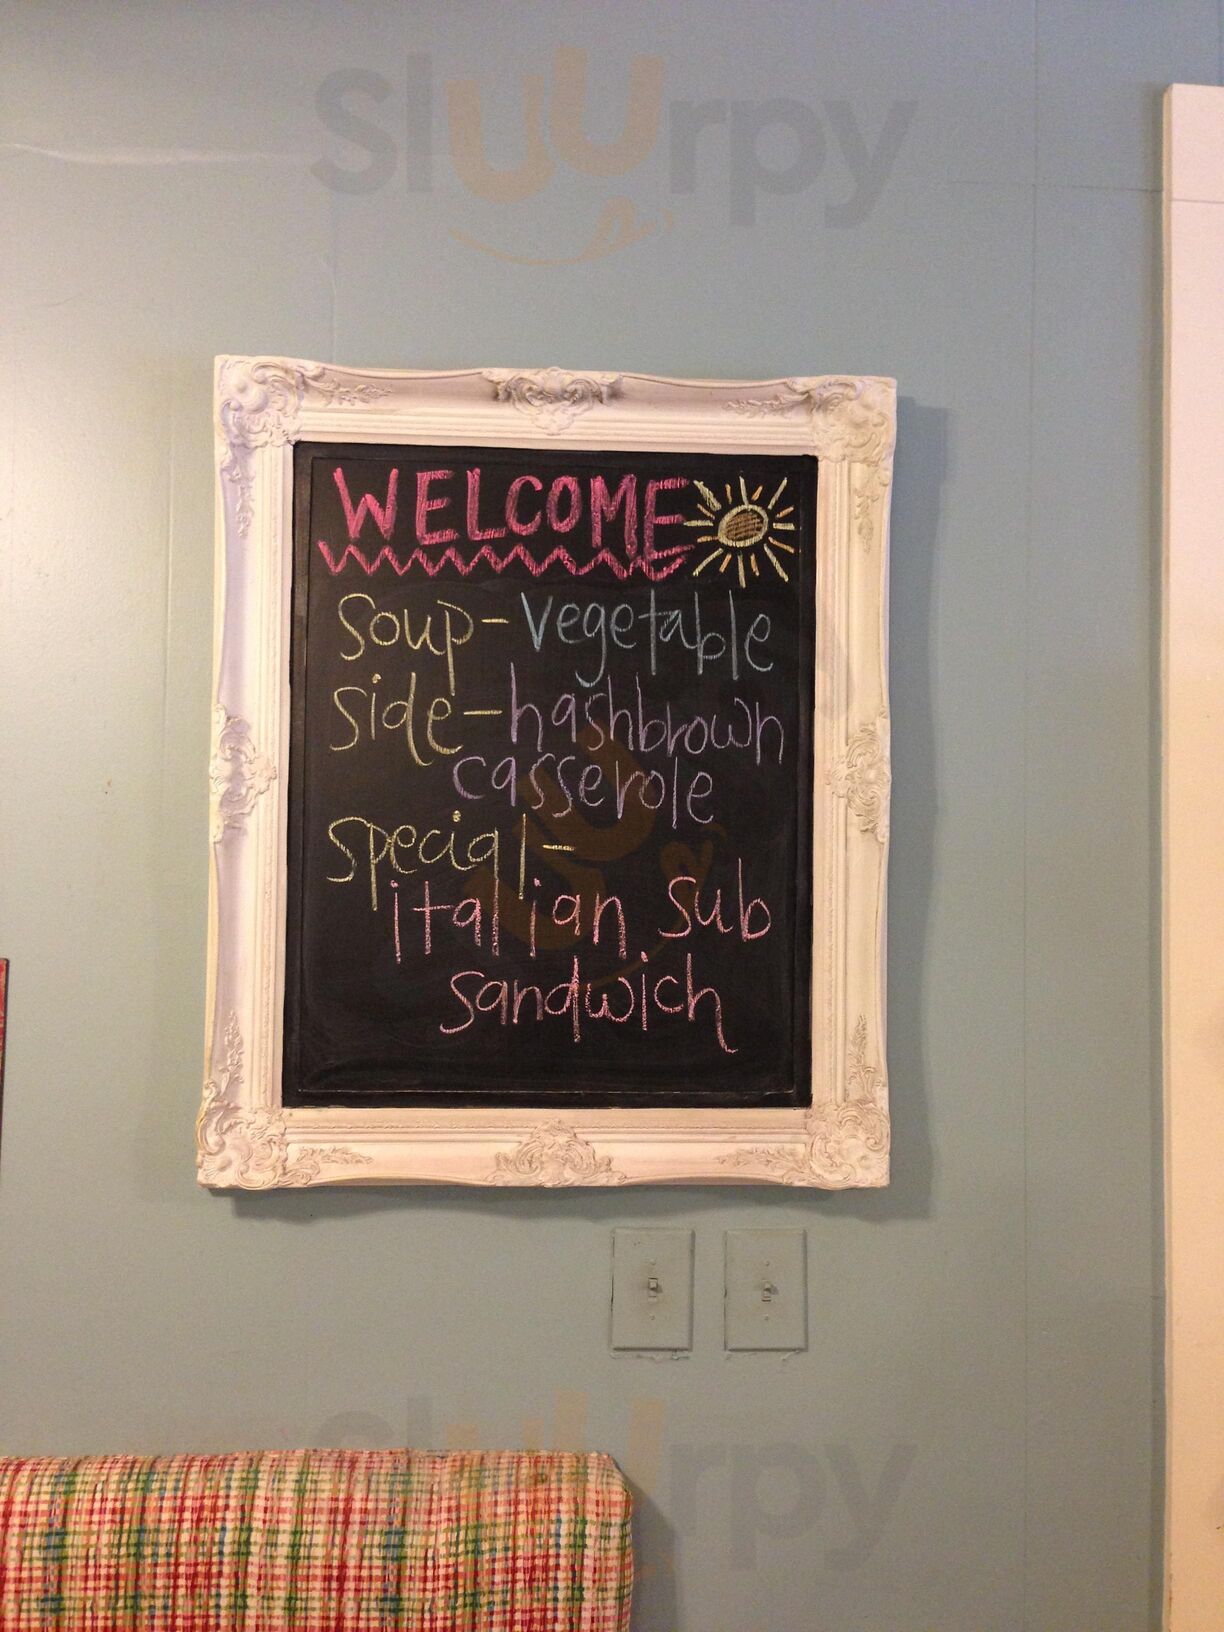 Sluurpy
WELCOME
soup - vegetable
side - hashbrown
casserole
special -
italian sub
sandwich
Sluurpy